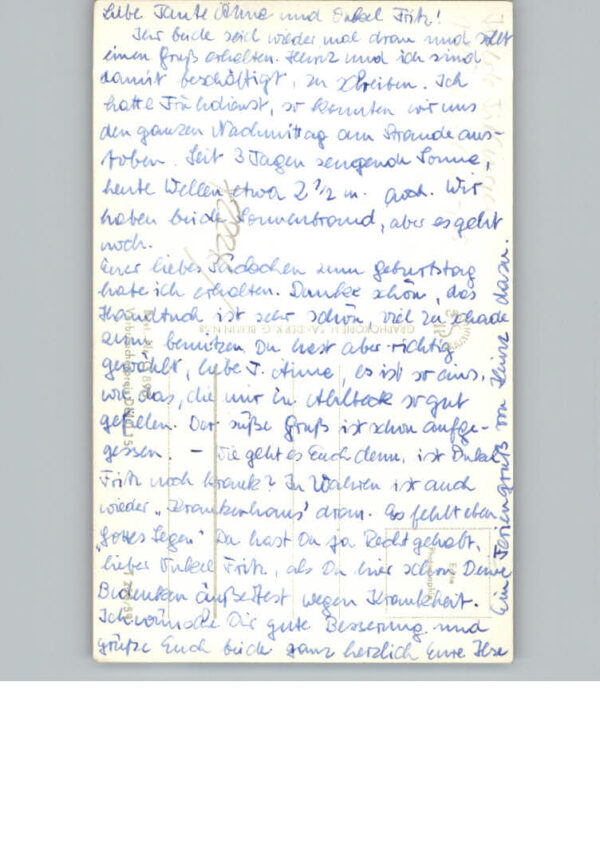 Liebe Tante Änne und Onkel Fritz!
Ihr beide seid wieder mal dran und sollt
einen Gruß erhalten. Heinz und ich sind
damit beschäftigt, zu schreiben. Ich
hatte Frühdienst, so konnten wir uns
den ganzen Nachmittag am Strande aus-
toben. Seit 3 Tagen sengende Sonne,
heute Wellen etwa 2 1/2 m. hoch. Wir
haben beide Sonnenbrand, aber es geht
noch.
Euer liebes Päckchen zum Geburtstag
habe ich erhalten. Danke schön, das
Handtuch ist sehr schön, viel zu schade
zum benützen. Du hast aber richtig
gewählt, liebe T. Änne, es ist so eins,
wie das, die mir in Ahlbeck so gut
gefallen. Der süße Gruß ist schon aufge-
gessen. – Wie geht es Euch denn, ist Onkel
Fritz noch krank? In Wahren ist auch
wieder „Krankenhaus" dran. Es fehlt eben
„Gottes Segen" Da hast Du ja Recht gehabt,
lieber Onkel Fritz, als Du hier schon Deine
Bedenken äußertest wegen Krankheit.
Ich wünsche Dir gute Besserung und
grüße Euch beide ganz herzlich Eure Ilse
Eine Feriengruß von Heinz dazu.